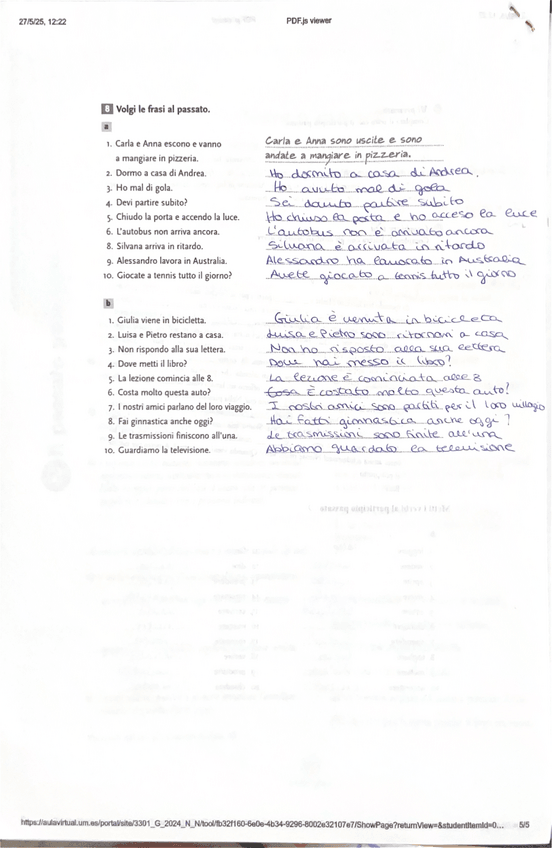 27/5/25, 12:22 PDF.js viewer
8 Volgi le frasi al passato.
a
1. Carla e Anna escono e vanno Carla e Anna sono uscite e sono
a mangiare in pizzeria. andate a mangiare in pizzeria.
2. Dormo a casa di Andrea. Ho dormito a casa di Andrea.
3. Ho mal di gola. Ho avuto mal di gola
4. Devi partire subito? Sei dovuto partire subito
5. Chiudo la porta e accendo la luce. Ho chiuso la porta e ho acceso la luce
6. L'autobus non arriva ancora. L'autobus non è arrivato ancora
8. Silvana arriva in ritardo. Silvana è arrivata in ritardo
9. Alessandro lavora in Australia. Alessandro ha lavorato in Australia
10. Giocate a tennis tutto il giorno? Avete giocato a tennis tutto il giorno
b
1. Giulia viene in bicicletta. Giulia è venuta in bicicleta
2. Luisa e Pietro restano a casa. Luisa e Pietro sono ritornari a casa
3. Non rispondo alla sua lettera. Non ho risposto alla sua lettera
4. Dove metti il libro? Dove hai messo il libro?
5. La lezione comincia alle 8. La lezione è cominciata alle 8
6. Costa molto questa auto? Cosa È costato molto questa auto!
7. I nostri amici parlano del loro viaggio. I nostri amici sono partiti per il loro villago
8. Fai ginnastica anche oggi? Hai fatti gimnastica anche oggi?
9. Le trasmissioni finiscono all'una. Le trasmissioni sono finite all'una
10. Guardiamo la televisione. Abbiamo guardato la televisione
https://aulavirtual.um.es/portal/site/3301_G_2024_N_N/tool/fb32f160-6e0e-4b34-9296-8002e32107e7/ShowPage?returnView=&studentItemId=0... 5/5